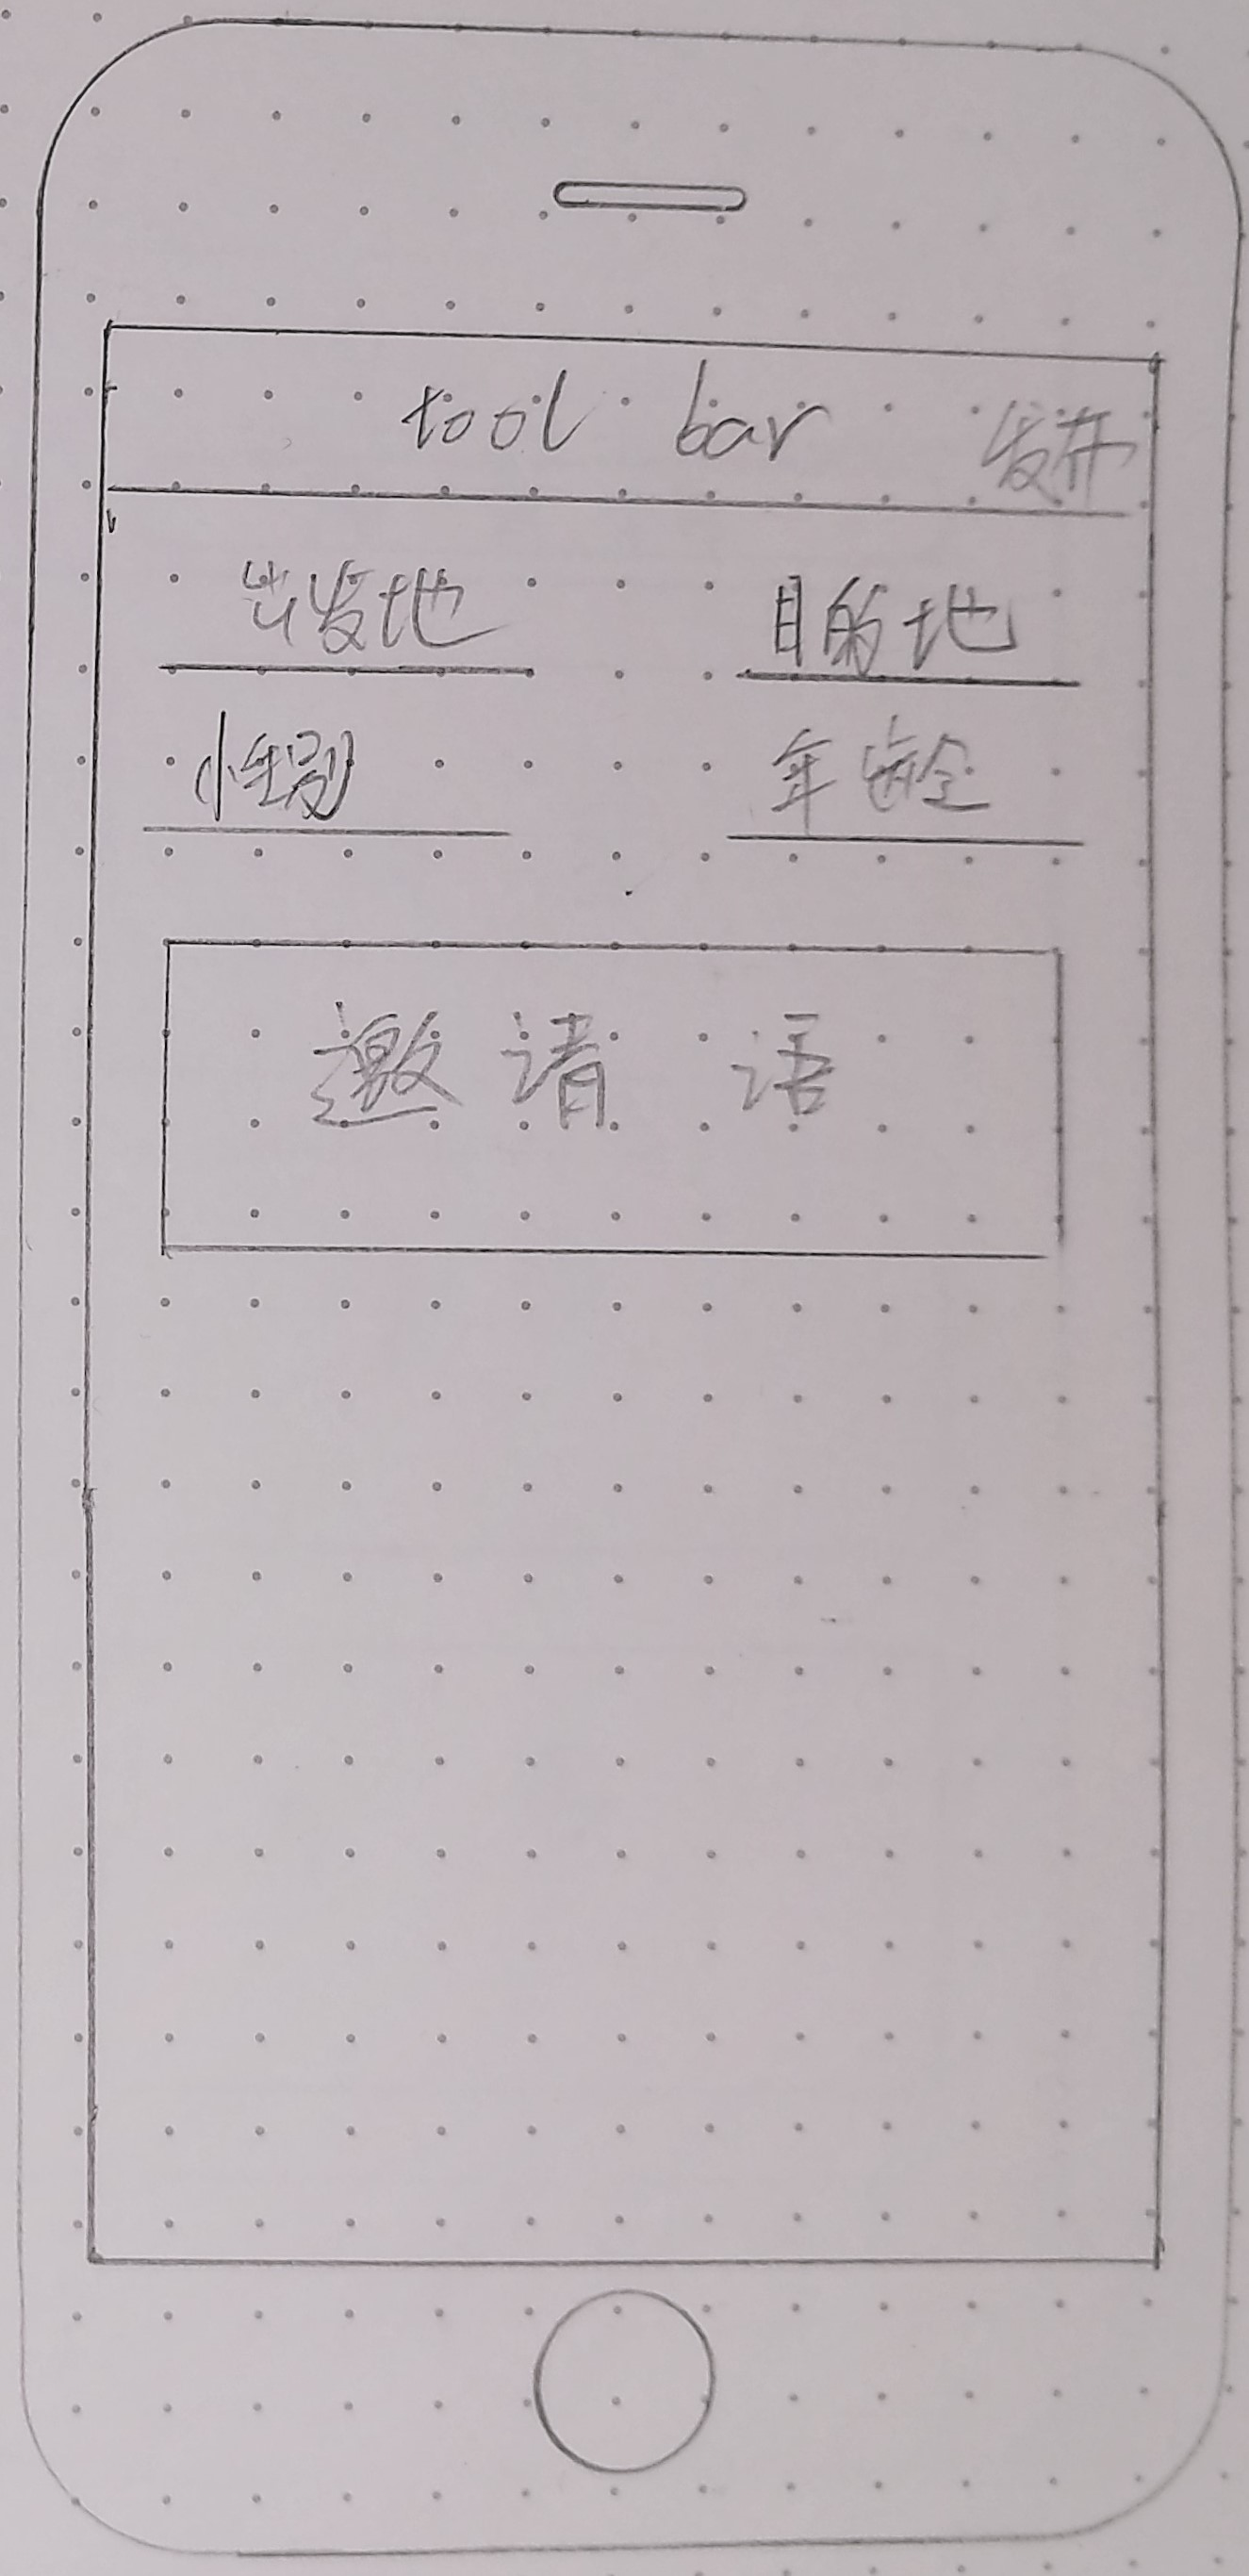 tool bar
出发地 目的地
性别 年龄
邀请语